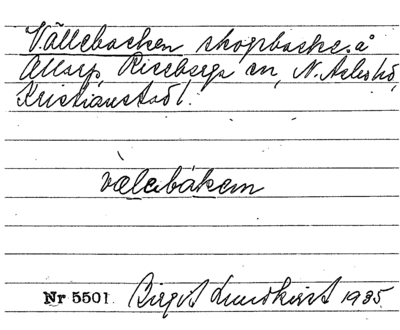 Vällebacken skogsbacke å
Allarp, Riseberga sn, N. Åsbo hd,
Kristianstad l.
vàlebàken
Nr 5501. Birgit Lundkvist 1935